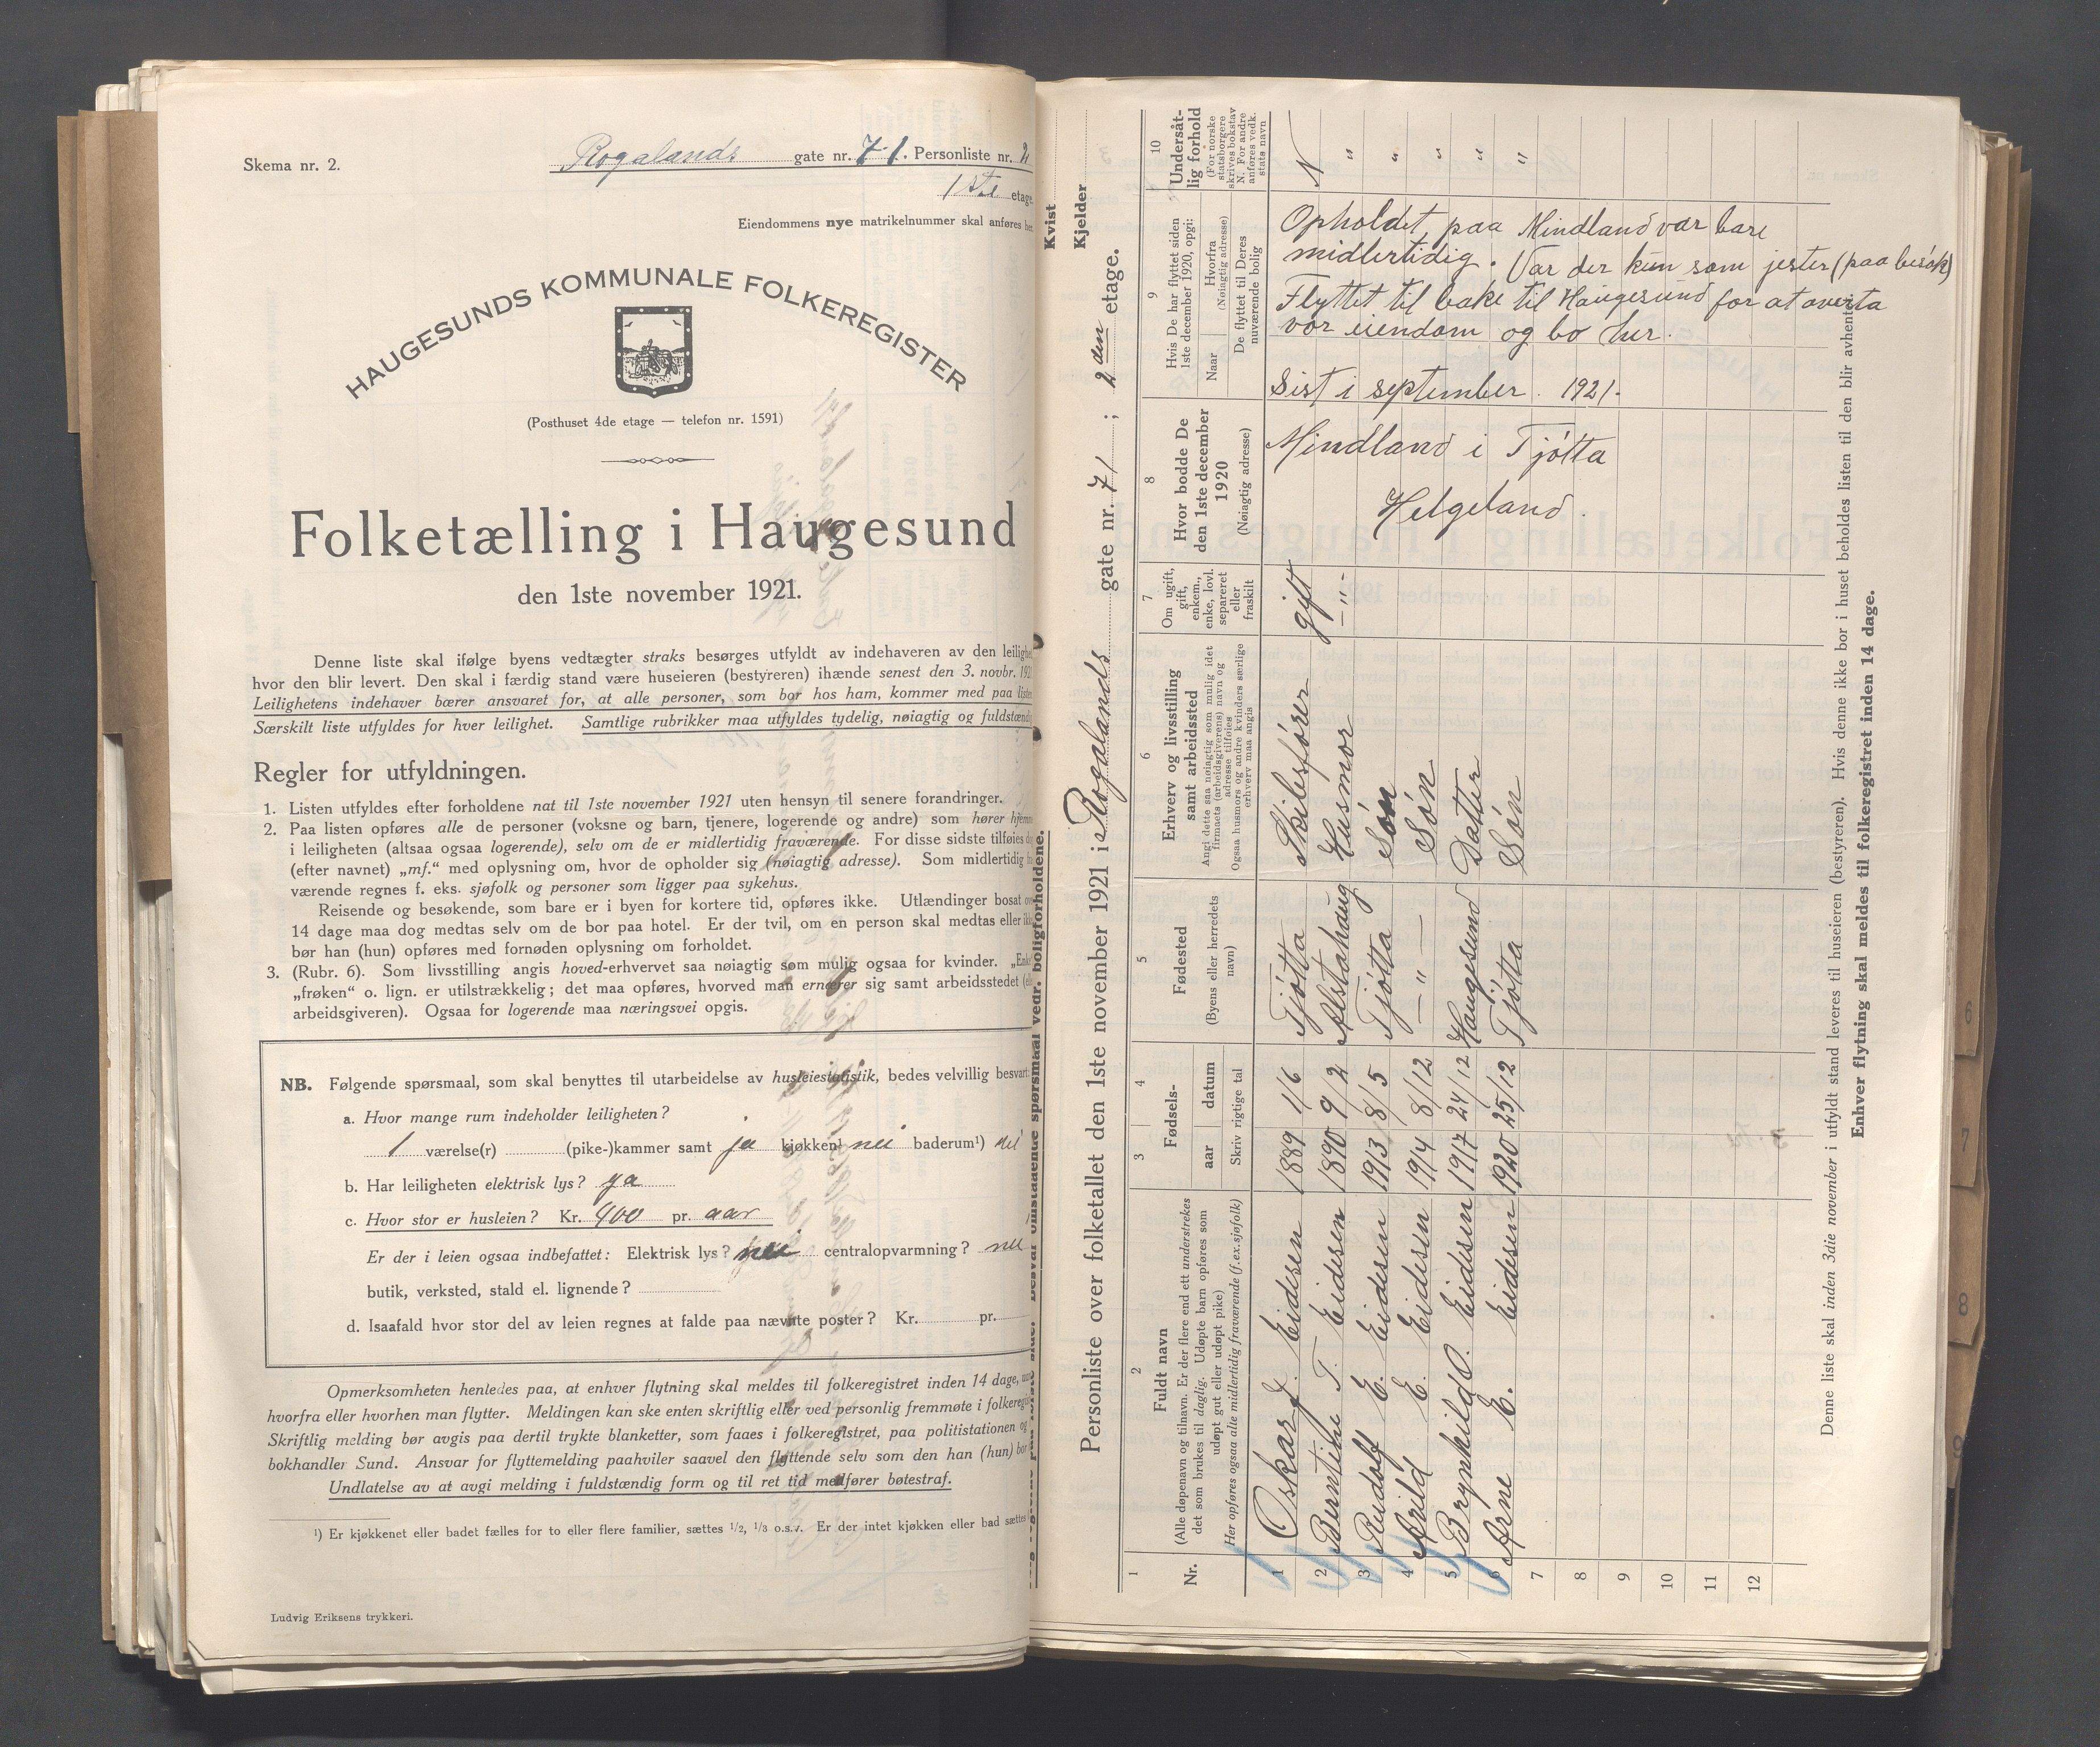 Skema nr. 2.
Rogalands gate nr. 71. Personliste nr.
1ste etage.
Eiendommens nye matrikelnummer skal anføres her
HAUGESUNDS KOMMUNALE FOLKEREGISTER
(Posthuset 4de etage — telefon nr. 1591)
Folketælling i Haugesund
den 1ste november 1921.
Denne liste skal ifølge byens vedtægter straks besørges utfyldt av indehaveren av den leilighet
hvor den blir levert. Den skal i færdig stand være huseieren (bestyreren) ihænde senest den 3. novbr. 1921
Leilighetens indehaver bærer ansvaret for, at alle personer, som bor hos ham, kommer med paa listen
Særskilt liste utfyldes for hver leilighet. Samtlige rubrikker maa utfyldes tydelig, nøiagtig og fuldstændig
Regler for utfyldningen.
1. Listen utfyldes efter forholdene nat til 1ste november 1921 uten hensyn til senere forandringer.
2. Paa listen opføres alle de personer (voksne og barn, tjenere, logerende og andre) som hører hjemme
i leiligheten (altsaa ogsaa logerende), selv om de er midlertidig fraværende. For disse sidste tilføies da
(efter navnet) „mf.“ med oplysning om, hvor de opholder sig (nøiagtig adresse). Som midlertidig fra
værende regnes f. eks. sjøfolk og personer som ligger paa sykehus.
Reisende og besøkende, som bare er i byen for kortere tid, opføres ikke. Utlændinger bosat over
14 dage maa dog medtas selv om de bor paa hotel. Er der tvil, om en person skal medtas eller ikke
bør han (hun) opføres med fornøden oplysning om forholdet.
3. (Rubr. 6). Som livsstilling angis hoved-erhvervet saa nøiagtig som mulig ogsaa for kvinder. „Enke“
„frøken“ o. lign. er utilstrækkelig; det maa opføres, hvorved man ernærer sig samt arbeidsstedet (el.
arbeidsgiveren). Ogsaa for logerende maa næringsvei opgis.
NB. Følgende spørsmaal, som skal benyttes til utarbeidelse av husleiestatistik, bedes velvillig besvart:
a. Hvor mange rum indeholder leiligheten?
1 værelse(r) (pike-)kammer samt ja kjøkken¹ nei baderum¹) nei
b. Har leiligheten elektrisk lys? ja
c. Hvor stor er husleien? Kr. 400 pr. aar
Er der i leien ogsaa indbefattet: Elektrisk lys? nei centralopvarmning? nei
butik, verksted, stald el. lignende?
d. Isaafald hvor stor del av leien regnes at falde paa nævnte poster? Kr. pr.
Opmerksomheten henledes paa, at enhver flytning skal meldes til folkeregistret inden 14 dage,
hvorfra eller hvorhen man flytter. Meldingen kan ske enten skriftlig eller ved personlig fremmøte i folkeregis
Skriftlig melding bør avgis paa dertil trykte blanketter, som faaes i folkeregistret, paa politistationen og
bokhandler Sund. Ansvar for flyttemelding paahviler saavel den flyttende selv som den han (hun) bor
Undlatelse av at avgi melding i fuldstændig form og til ret tid medfører bøtestraf.
¹) Er kjøkkenet eller badet fælles for to eller flere familier, sættes 1/2, 1/3 o.s.v. Er der intet kjøkken eller bad sættes
Ludvig Eriksens trykkeri.
Kvist
Kjelder
Personliste over folketallet den 1ste november 1921 i Rogalands gate nr. 71; 2den etage.
1
Nr.
2
Fuldt navn
(Alle døpenavn og tilnavn. Er der flere end ett understrekes
det som brukes til daglig. Udøpte barn opføres som
udøpt gut eller udøpt pike)
Her opføres ogsaa alle midlertidig fraværende (f.ex. sjøfolk)
3 4
Fødsels-
aar datum
Skriv rigtige tal
5
Fødested
(Byens eller herredets
navn)
6
Erhverv og livsstilling
samt arbeidssted
Angi dette saa nøiagtig som mulig idet
firmaets (arbeidsgiverens) navn og
adresse tilføies
Ogsaa husmors og andre kvinders særlige
erhverv maa angis
7
Om ugift,
gift,
enkem.,
enke, lovl.
separeret
eller
fraskilt
8
Hvor bodde De
den 1ste december
1920
(Nøiagtig adresse)
9
Hvis De har flyttet siden
1ste december 1920, opgi:
Naar Hvorfra
(Nøiagtig adresse)
De flyttet til Deres
nuværende bolig
10
Undersåt-
lig forhold
(For norske
statsborgere
skrives bokstav
N. For andre
anføres vedk.
stats navn
1 Oskar J. Eidisen 1889 1/6 Tjøtta Skibsfører gift N
2 Berntine T. Eidisen 1890 9/2 Alstahaug Husmor —"— "
3 Reidolf E. Eidisen 1913 8/5 Tjøtta Søn "
4 Arild E. Eidisen 1914 8/12 —"— Søn "
5 Brynhild O. Eidisen 1917 24/12 Haugesund Datter "
6 Arne E. Eidisen 1920 25/12 Tjøtta Søn "
Mindland i Tjøtta
Helgeland.
Sist i september. 1921.
Opholdet paa Mindland var bare
midlertidig. Var der kun som jester (paa besøk)
Flyttet til bake til Haugesund for at overta
vor eiendom og bo her.
7
8
9
10
11
12
Denne liste skal inden 3die november i utfyldt stand leveres til huseieren (bestyreren). Hvis denne ikke bor i huset beholdes listen til den blir avhentet.
Enhver flytning skal meldes til folkeregistret inden 14 dage.